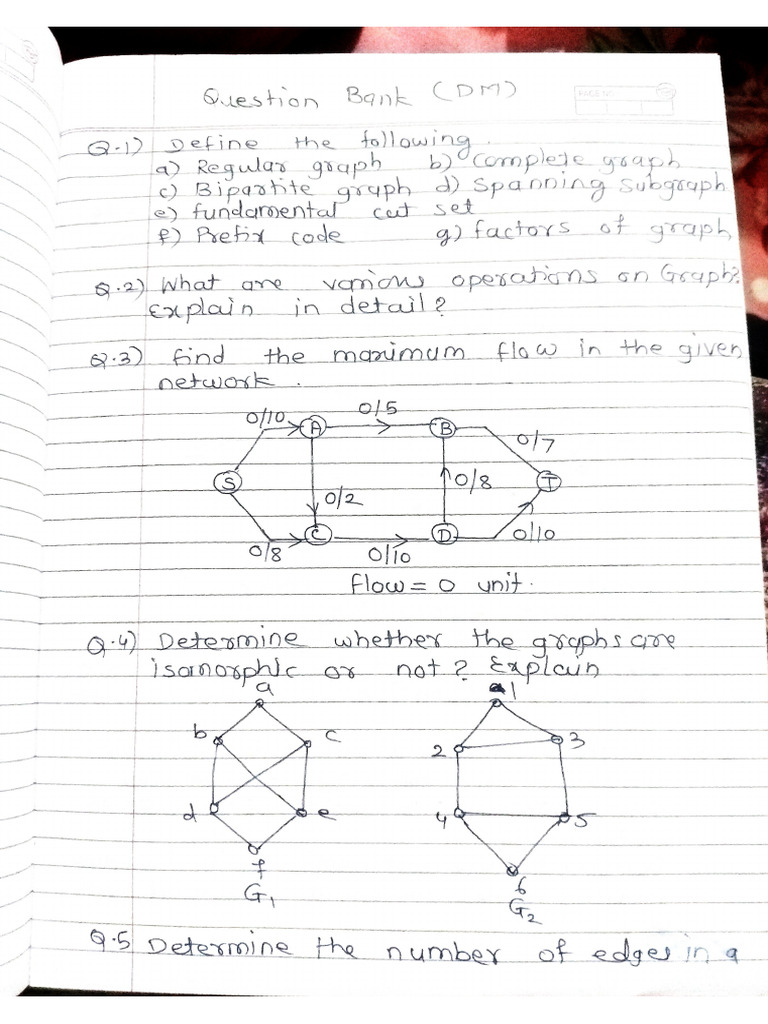 Question Bank (DM)
PAGE NO.
Q.1) Define the following.
a) Regular graph b) Complete graph
c) Bipartite graph d) Spanning Subgraph
e) fundamental cut set
f) Prefix code g) factors of graph
Q.2) What are various operations on Graph?
Explain in detail?
Q.3) find the maximum flow in the given
network.
0/10 A 0/5 B 0/7
S 0/2 0/8 T
0/8 C 0/10 D 0/10
flow = 0 unit.
Q.4) Determine whether the graphs are
isomorphic or not? Explain
a 1
b c 2 3
d e 4 5
f 6
G₁ G₂
Q.5 Determine the number of edges in a